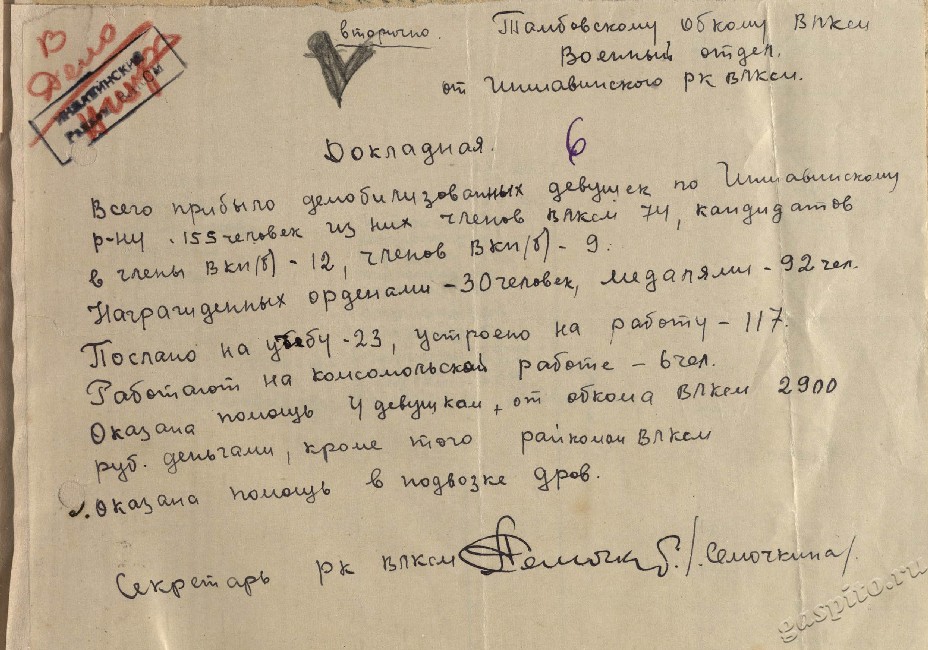 В
Дело
ИНЖАВИНСКИЙ
Вторично.
Тамбовскому Обкому ВЛКСМ
Военный отдел.
от Инжавинского РК ВЛКСМ.
Докладная.
6
Всего прибыло демобилизованных девушек по Инжавинскому
р-ну . 155 человек из них членов ВЛКСМ 74, кандидатов
в члены ВКП/б/ - 12, членов ВКП/б/ - 9.
Награжденных орденами - 30 человек, медалями - 92 чел.
Послано на учебу - 23, устроено на работу - 117.
Работают на комсомольской работе - 6 чел.
Оказана помощь 4 девушкам, от обкома ВЛКСМ 2900
руб. деньгами, кроме того райкомом ВЛКСМ
Оказана помощь в подвозке дров.
Секретарь РК ВЛКСМ /Семочкина/.
gaspito.ru